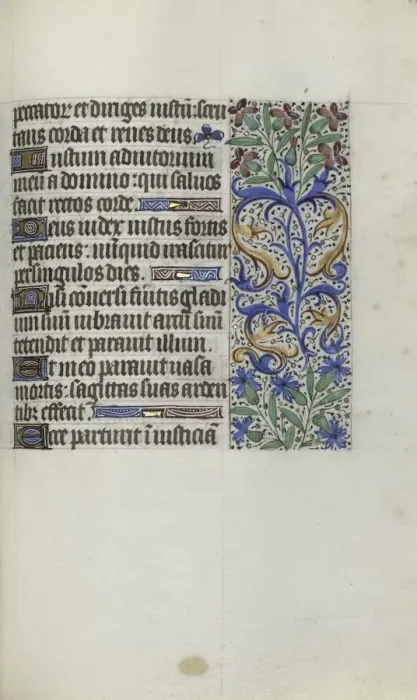 peccator et diriges iustū: scru
tans corda et renes deus
Iustum adiutorium
meū a domino: qui saluos
facit rectos corde.
Deus iudex iustus fortis
et paciens: nūquid irascitur
per singulos dies.
Nisi conuersi fuitis gladi
um suū uibrauit arcū suū
tetendit et parauit illum.
Et in eo parauit uasa
mortis: sagittas suas arden
tibꝫ effecit
Ecce parturit ī iusticiā